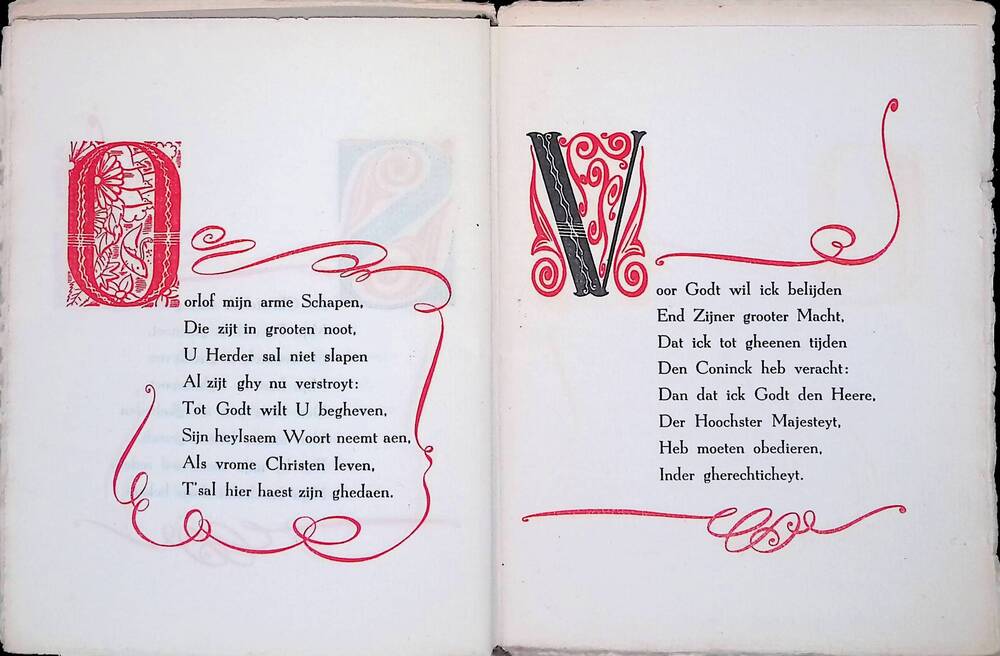 Oorlof mijn arme Schapen,
Die zijt in grooten noot,
U Herder sal niet slapen
Al zijt ghy nu verstroyt:
Tot Godt wilt U begheven,
Sijn heylsaem Woort neemt aen,
Als vrome Christen leven,
T'sal hier haest zijn ghedaen.
Voor Godt wil ick belijden
End Zijner grooter Macht,
Dat ick tot gheenen tijden
Den Coninck heb veracht:
Dan dat ick Godt den Heere,
Der Hoochster Majesteyt,
Heb moeten obedieren,
Inder gherechticheyt.